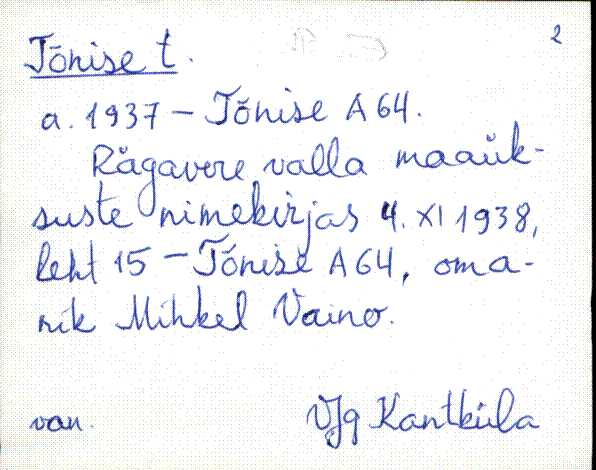 2
Tõnise t.
a. 1937 – Tõnise A 64.
Rägavere valla maaük-
suste nimekirjas 4. XI 1938,
leht 15 – Tõnise A 64, oma-
nik Mihkel Vaino.
van. VJg Kantküla